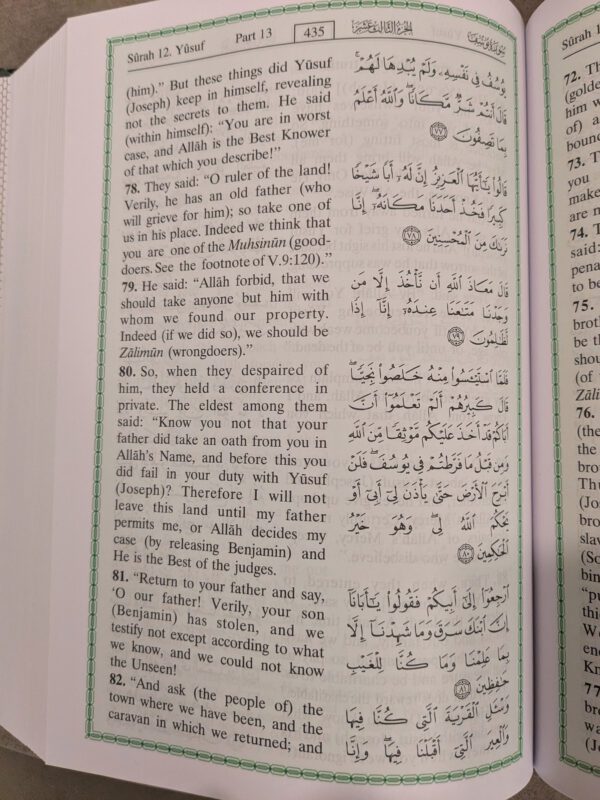 Sûrah 12. Yûsuf
Part 13
435
الجزء الثالث عشر
سورة يوسف
(him).” But these things did Yûsuf
(Joseph) keep in himself, revealing
not the secrets to them. He said
(within himself): “You are in worst
case, and Allâh is the Best Knower
of that which you describe!”
78. They said: “O ruler of the land!
Verily, he has an old father (who
will grieve for him); so take one of
us in his place. Indeed we think that
you are one of the Muhsinûn (good-
doers. See the footnote of V.9:120).”
79. He said: “Allâh forbid, that we
should take anyone but him with
whom we found our property.
Indeed (if we did so), we should be
Zâlimûn (wrongdoers).”
80. So, when they despaired of
him, they held a conference in
private. The eldest among them
said: “Know you not that your
father did take an oath from you in
Allâh’s Name, and before this you
did fail in your duty with Yûsuf
(Joseph)? Therefore I will not
leave this land until my father
permits me, or Allâh decides my
case (by releasing Benjamin) and
He is the Best of the judges.
81. “Return to your father and say,
‘O our father! Verily, your son
(Benjamin) has stolen, and we
testify not except according to what
we know, and we could not know
the Unseen!
82. “And ask (the people of) the
town where we have been, and the
caravan in which we returned; and
يُوسُفُ فِي نَفْسِهِۦ وَلَمْ يُبْدِهَا لَهُمْ ۚ
قَالَ أَنتُمْ شَرٌّ مَّكَانًا ۖ وَٱللَّهُ أَعْلَمُ
بِمَا تَصِفُونَ ٧٧
قَالُوا۟ يَـٰٓأَيُّهَا ٱلْعَزِيزُ إِنَّ لَهُۥٓ أَبًا شَيْخًا
كَبِيرًا فَخُذْ أَحَدَنَا مَكَانَهُۥٓ ۖ إِنَّا
نَرَىٰكَ مِنَ ٱلْمُحْسِنِينَ ٧٨
قَالَ مَعَاذَ ٱللَّهِ أَن نَّأْخُذَ إِلَّا مَن
وَجَدْنَا مَتَـٰعَنَا عِندَهُۥٓ إِنَّآ إِذًا
لَّظَـٰلِمُونَ ٧٩
فَلَمَّا ٱسْتَيْـَٔسُوا۟ مِنْهُ خَلَصُوا۟ نَجِيًّا ۖ
قَالَ كَبِيرُهُمْ أَلَمْ تَعْلَمُوٓا۟ أَنَّ
أَبَاكُمْ قَدْ أَخَذَ عَلَيْكُم مَّوْثِقًا مِّنَ ٱللَّهِ
وَمِن قَبْلُ مَا فَرَّطتُمْ فِي يُوسُفَ ۖ فَلَنْ
أَبْرَحَ ٱلْأَرْضَ حَتَّىٰ يَأْذَنَ لِيٓ أَبِيٓ أَوْ
يَحْكُمَ ٱللَّهُ لِي ۖ وَهُوَ خَيْرُ
ٱلْحَـٰكِمِينَ ٨٠
ٱرْجِعُوٓا۟ إِلَىٰٓ أَبِيكُمْ فَقُولُوا۟ يَـٰٓأَبَانَآ
إِنَّ ٱبْنَكَ سَرَقَ وَمَا شَهِدْنَآ إِلَّا
بِمَا عَلِمْنَا وَمَا كُنَّا لِلْغَيْبِ
حَـٰفِظِينَ ٨١
وَسْـَٔلِ ٱلْقَرْيَةَ ٱلَّتِي كُنَّا فِيهَا
وَٱلْعِيرَ ٱلَّتِيٓ أَقْبَلْنَا فِيهَا ۖ وَإِنَّا
Sûrah 1
72.
(golde
him w
of) a
boun
73. T
you
make
are n
74. T
said:
pena
to be
75.
broth
be th
shou
(of
Zâli
76.
(the
the
bro
Thu
(Jo
bro
slav
(So
“pu
of
We
en
Kn
77
bro
wa
(Jo